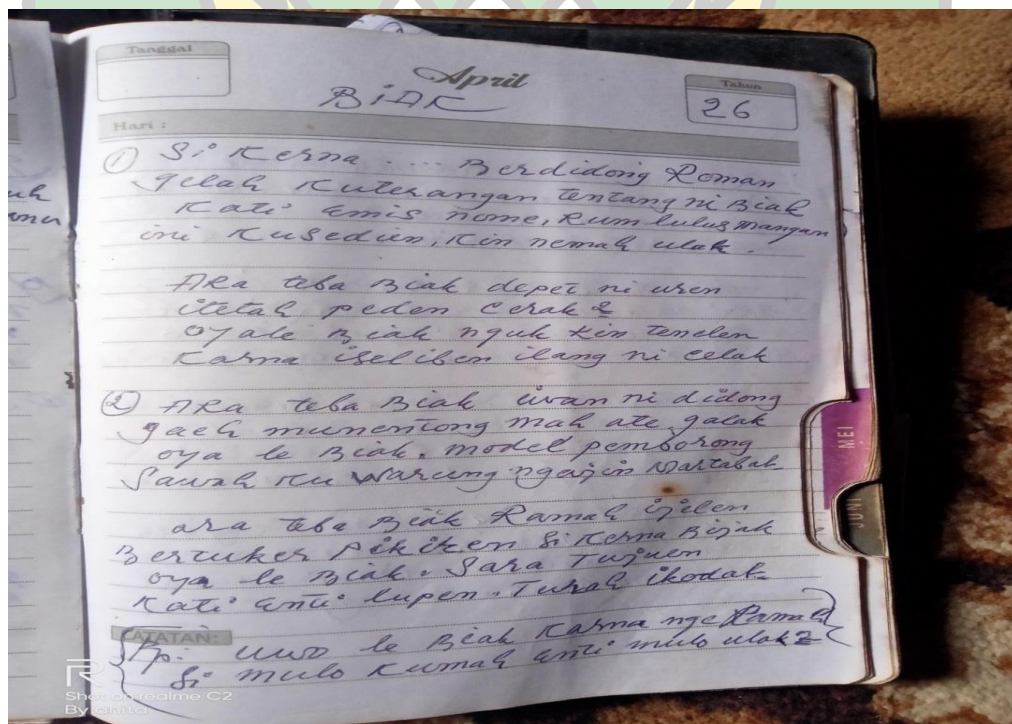 Tanggal
April
Tahun
26
BIAK
Hari :
① Si Kerna .... Berdidong Roman
gelah Kuterangan tentang ni Biak
Kati emis nome, Rum lulus mangan
ini Kusedien, Kin nemah ulak.
ARa teba Biak depet ni uren
itetah peden cerak 2
oyale Biak nguk kin tenelen
Karna iseliben ilang ni celak
② ARa teba Biak ni didong
gaeh munentong mah ate galak
oya le Biak. model pemborong
Sawah Ku Warung ngenjin Martabak
ara teba Biak Ramah ijelen
Bertuker pikiren Si Kerna Bijak
oya le Biak. Sara Tujuen
Kati enti lupen. Turah ikodak
CATATAN:
Rp: uwo le Biak Karna nge Ramah
Si mulo Kumah enti mulo ulak 2
MEI
JUNI
R
Shot on realme C2
By anita